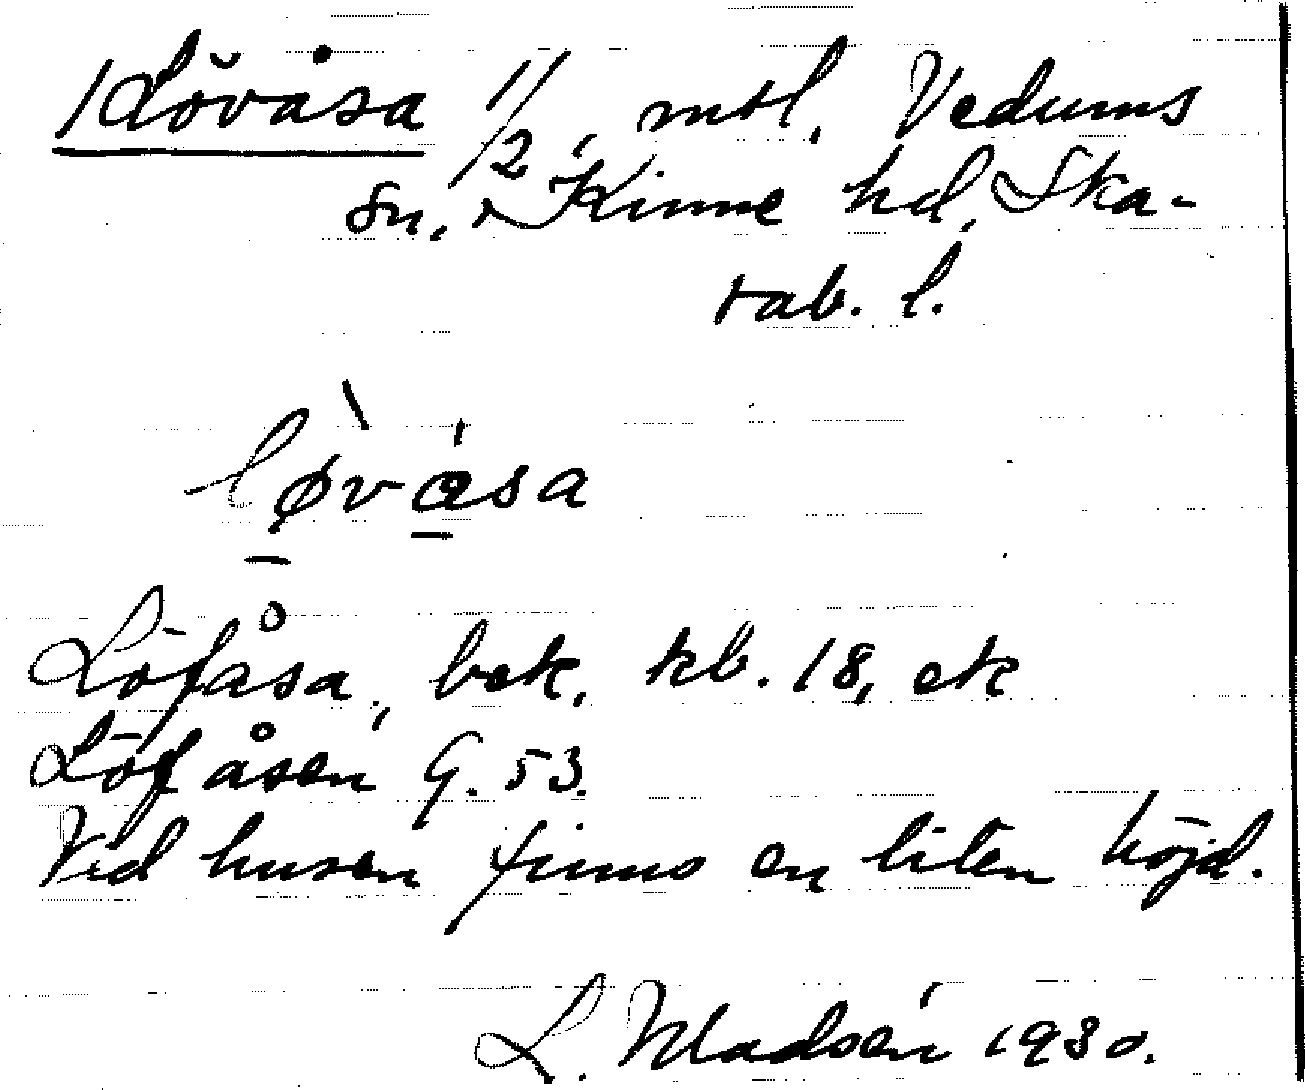 /Lövåsa 1/2, mtl, Vedums
sn, Kinne hd, Ska-
rab. l.
løvåsa
Löfåsa, bek, kb. 18, ek
Löfåsen G. 53.
Ved husen finns en liten höjd.
L. Madsén 1930.